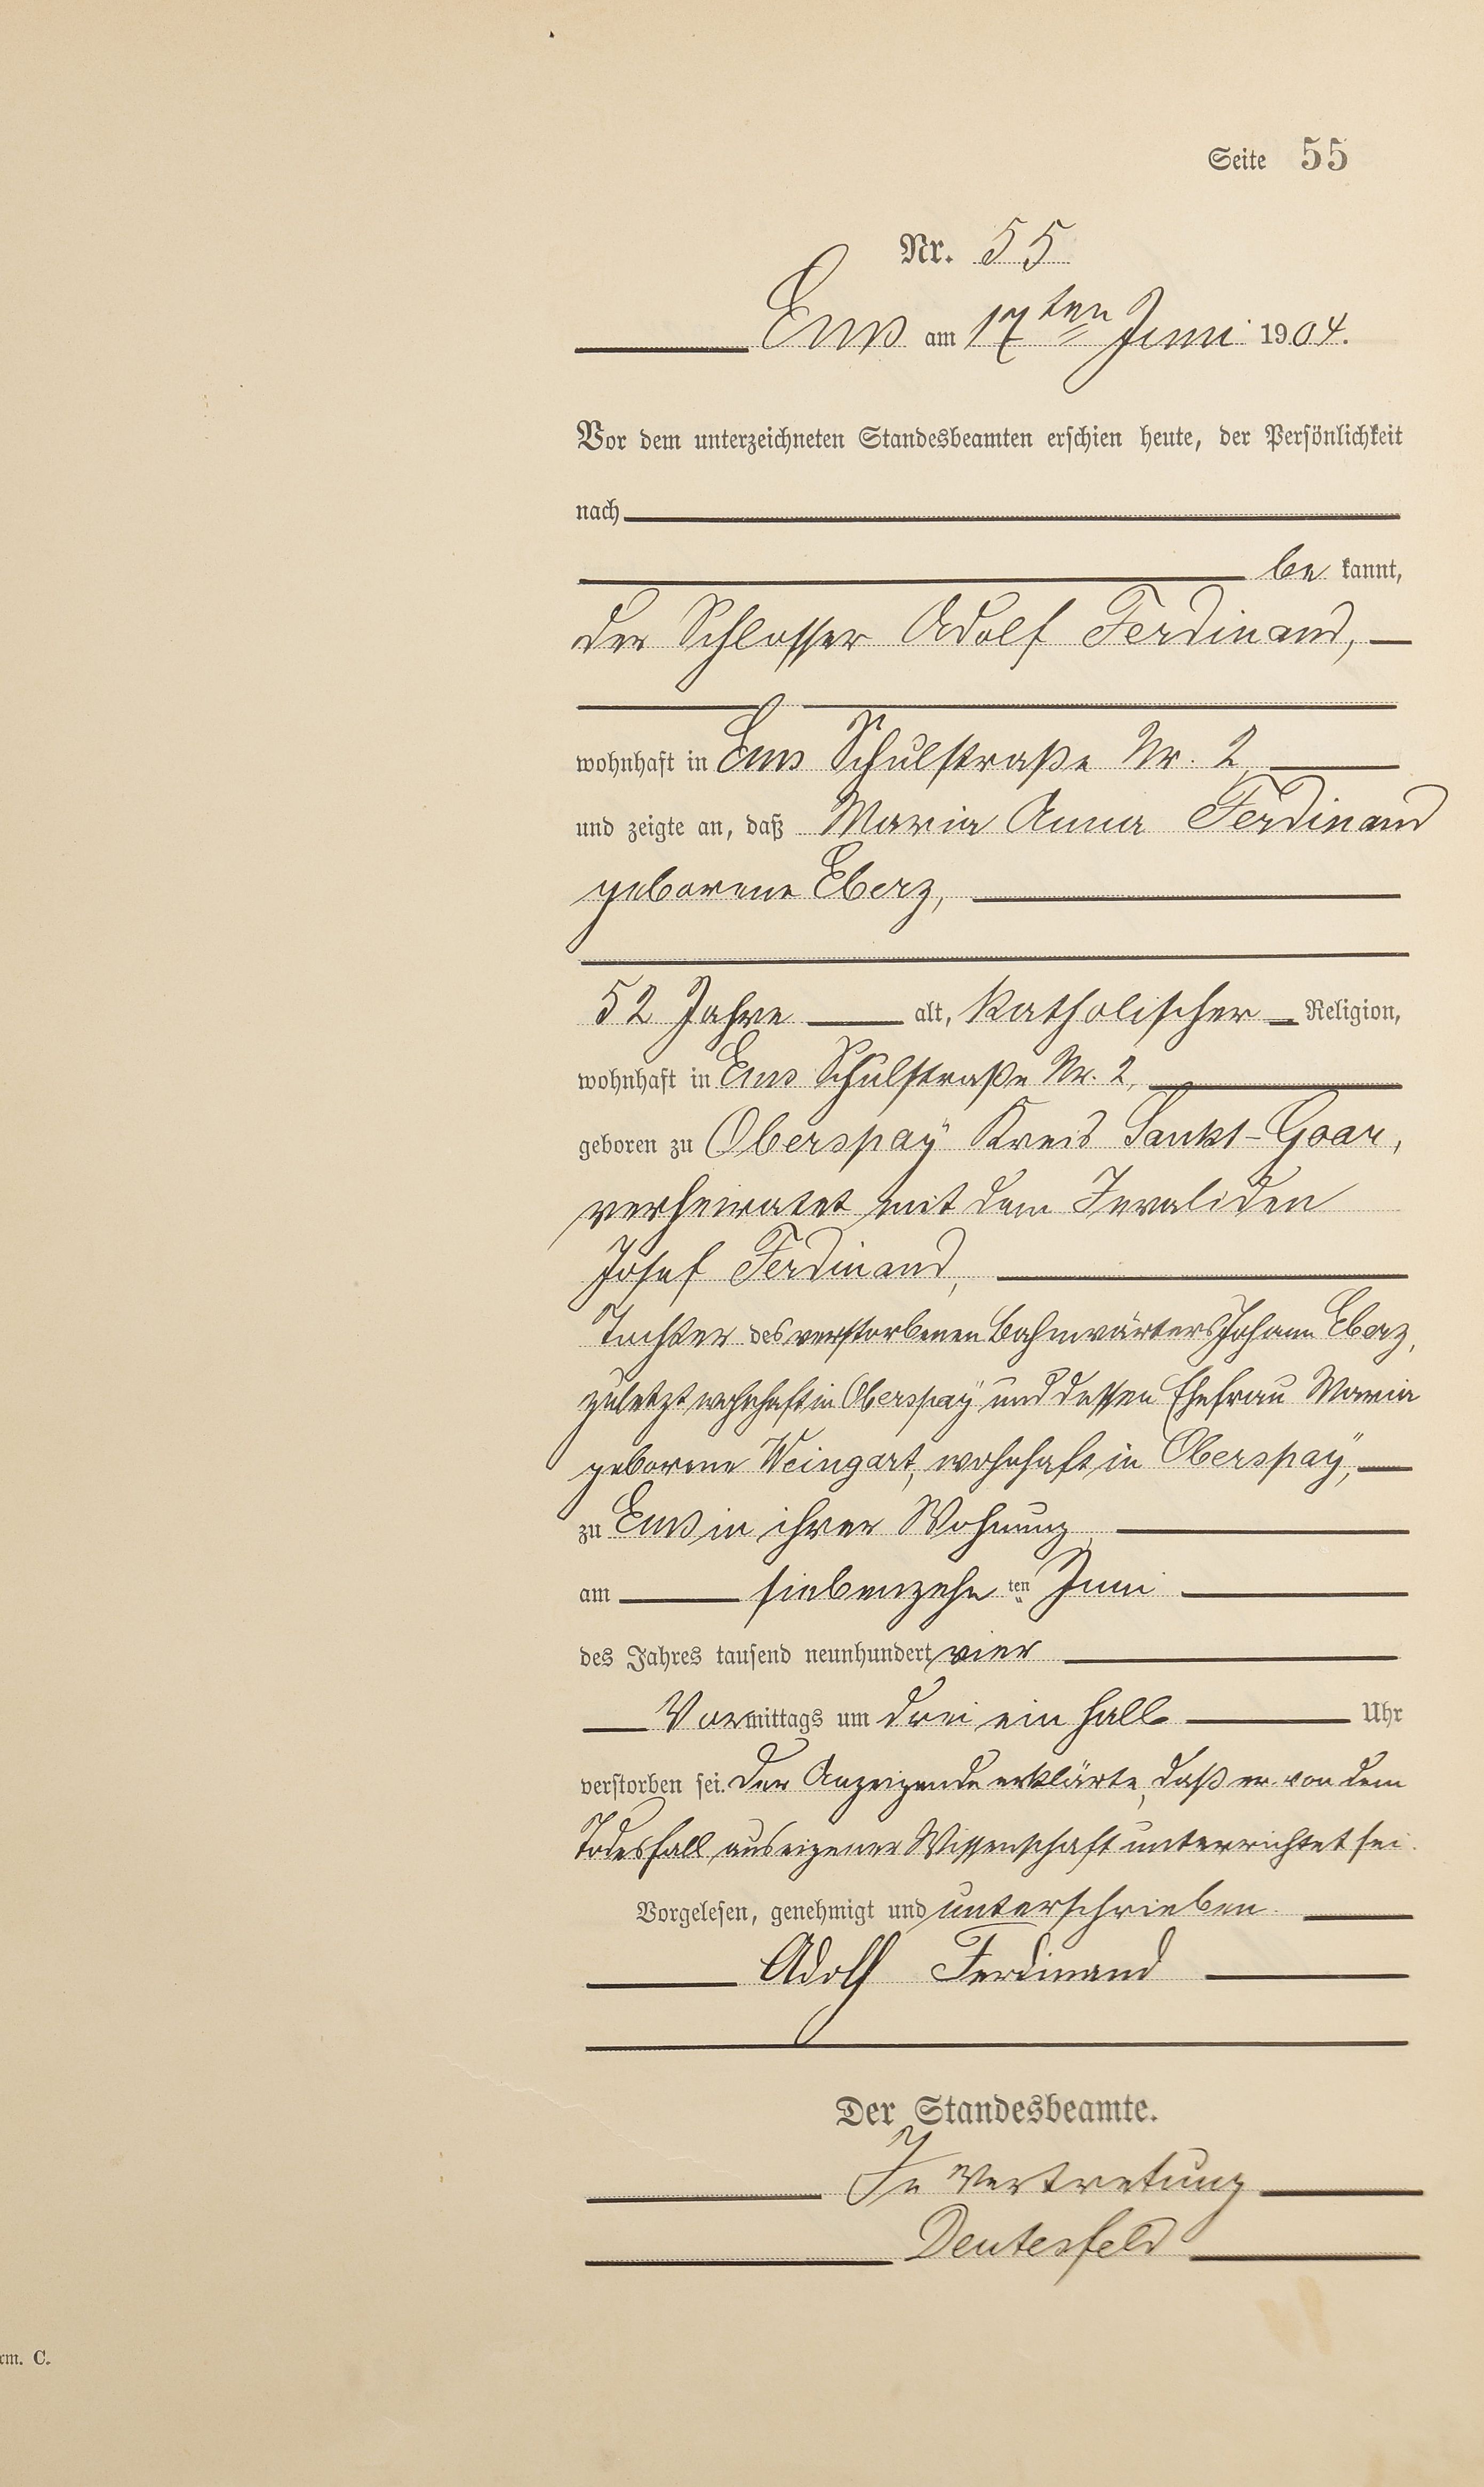 Seite 55
Nr. 55
Ems am 17ten Juni 1904.
Vor dem unterzeichneten Standesbeamten erschien heute, der Persönlichkeit
nach
be kannt,
der Schlosser Adolf Ferdinand,
wohnhaft in Ems Schulstraße Nr. 2
und zeigte an, daß Maria Anna Ferdinand
geborene Eberz,
52 Jahre alt, katholischer Religion,
wohnhaft in Ems Schulstraße Nr. 2,
geboren zu Oberspaÿ Kreis Sankt-Goar,
verheiratet mit dem Invaliden
Josef Ferdinand,
Tochter des verstorbenen Bahnwärters Johann Eberz,
zuletzt wohnhaft in Oberspaÿ und dessen Ehefrau Maria
geborene Weingart, wohnhaft in Oberspaÿ,
zu Ems in ihrer Wohnung
am siebenzehn ten Juni
des Jahres tausend neunhundert vier
Vormittags um drei ein halb Uhr
verstorben sei. Der Anzeigende erklärte, daß er von dem
Todesfall aus eigener Wissenschaft unterrichtet sei.
Vorgelesen, genehmigt und unterschrieben.
Adolf Ferdinand
Der Standesbeamte.
In Vertretung
Deutesfeld
rm. C.